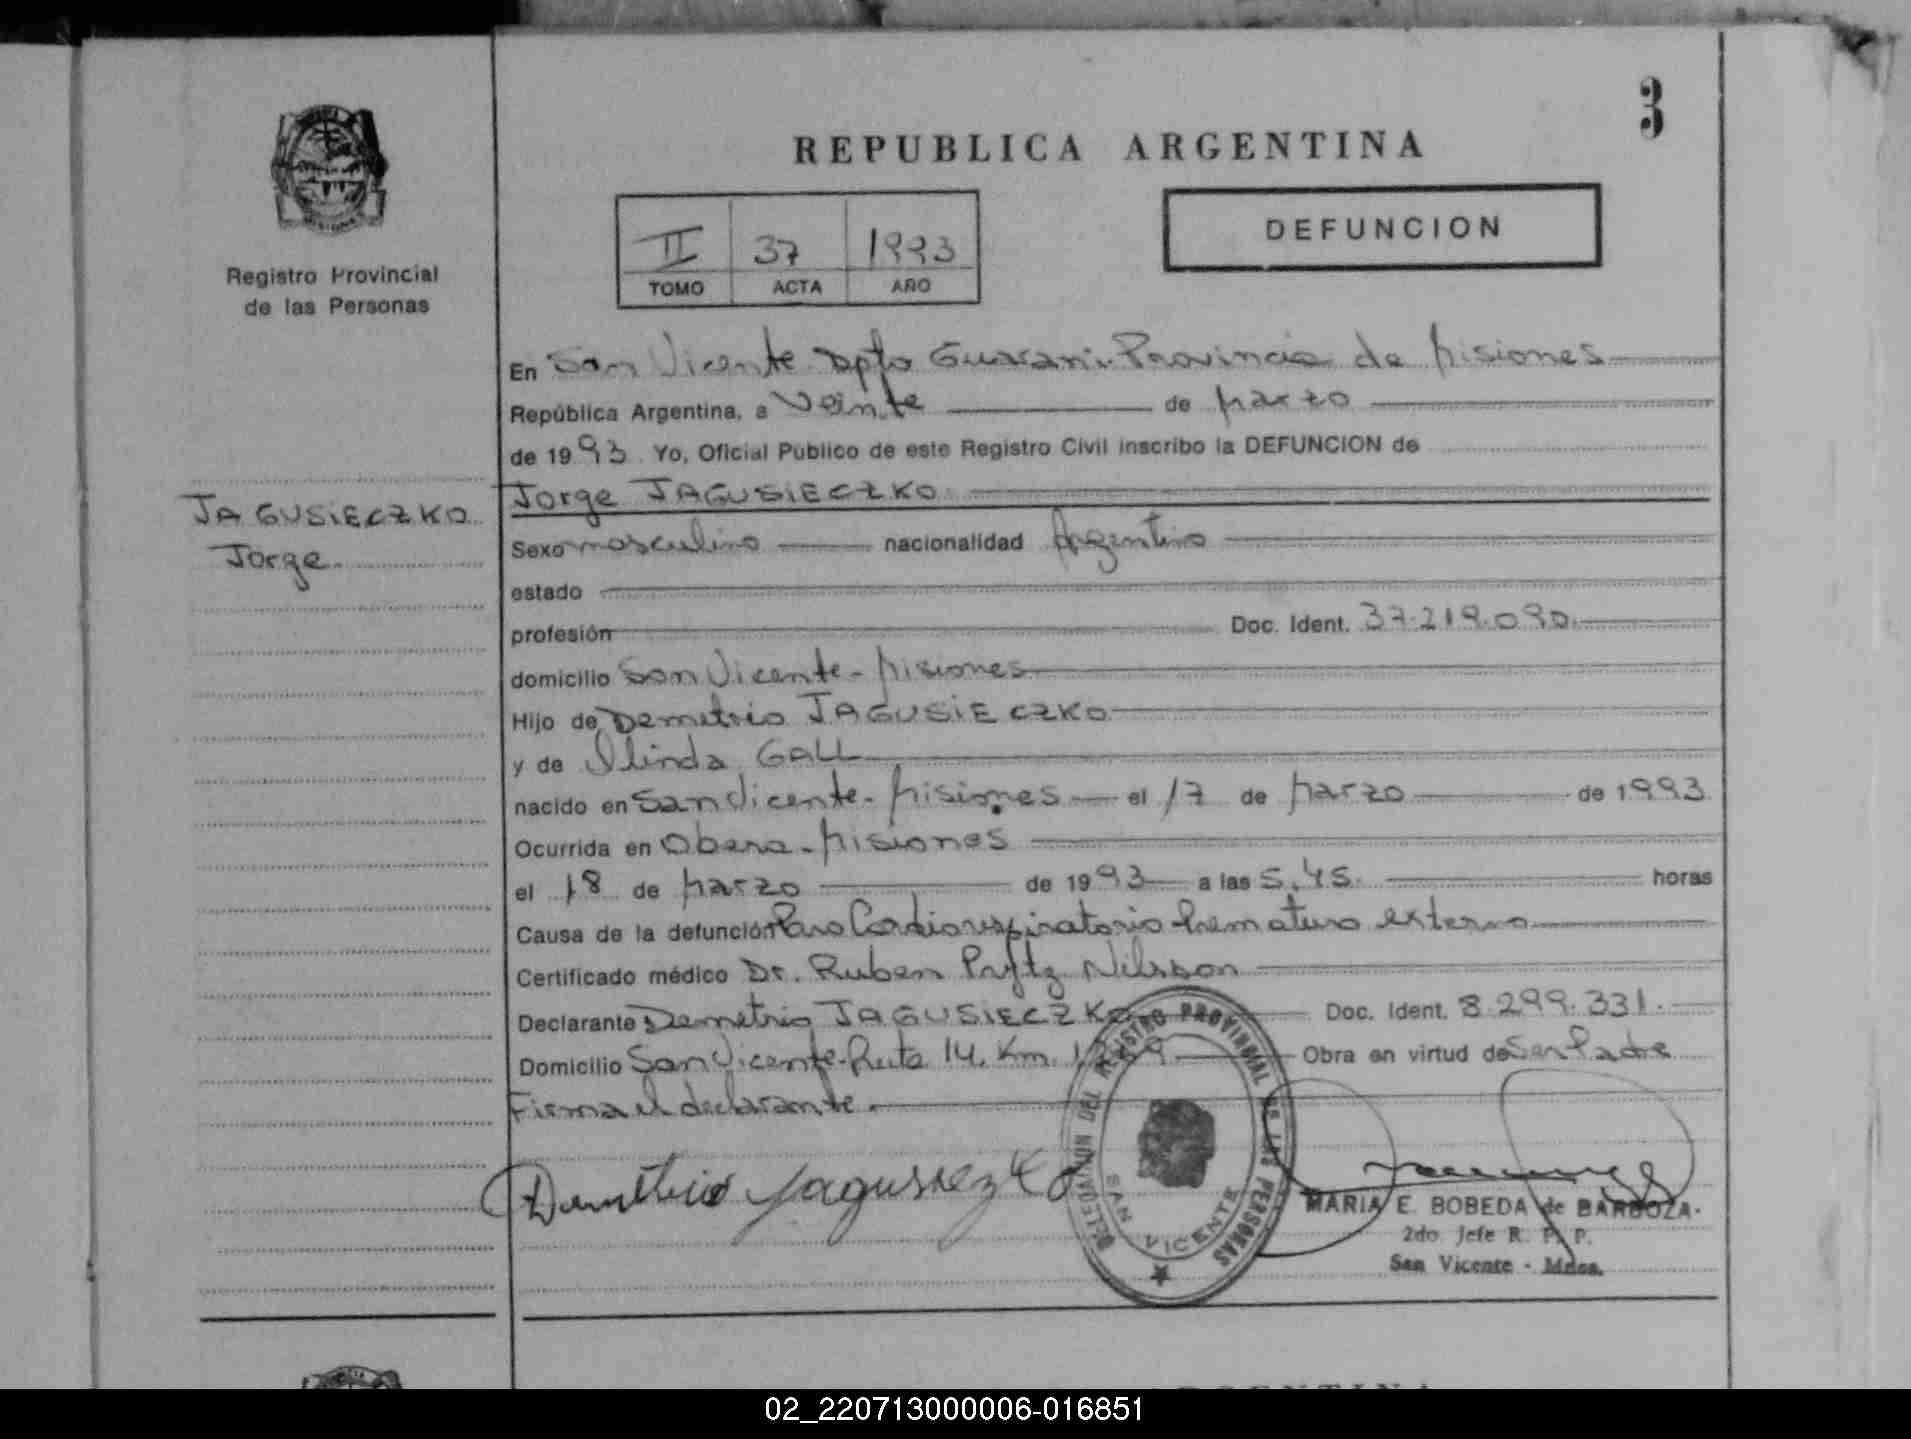 3
REPUBLICA ARGENTINA
II 37 1993
TOMO ACTA AÑO
DEFUNCION
Registro Provincial
de las Personas
JAGUSIECZKO
Jorge
En San Vicente Dpto Guarani. Provincia de Misiones
República Argentina, a Veinte de Marzo
de 1993. Yo, Oficial Público de este Registro Civil inscribo la DEFUNCION de
Jorge JAGUSIECZKO
Sexo masculino nacionalidad Argentino
estado
profesión Doc. Ident. 37.219.090.
domicilio San Vicente - Misiones
Hijo de Demetrio JAGUSIECZKO
y de Ilinda GALL
nacido en San Vicente - Misiones el 17 de Marzo de 1993
Ocurrida en Obera - Misiones
el 18 de Marzo de 1993 a las 5.45. horas
Causa de la defunción Paro Cardiorespiratorio Prematuro extremo
Certificado médico Dr. Ruben Nilsson
Declarante Demetrio JAGUSIECZKO Doc. Ident. 8.299.331.
Domicilio San Vicente - Ruta 14. Km. Obra en virtud de Ser Padre
Firma el declarante.
Demetrio Jagusieczko
DELEGACION DEL REGISTRO PROVINCIAL DE LAS PERSONAS
SAN VICENTE
MARIA E. BOBEDA de BARBOZA
2do. Jefe R. P. P.
San Vicente - Mnes.
ARGENTINA
02_220713000006-016851